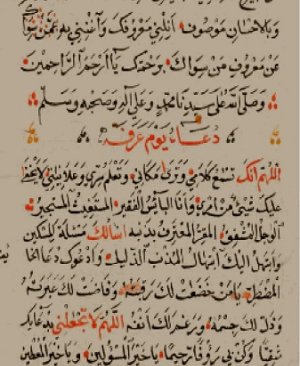 وبالاحسان موصوف انلني معروفك واغنني به عمن سواك
من معروف من سواك برحمتك يا ارحم الراحمين
وصلى الله على سيدنا محمد وعلى آله وصحبه وسلم
دعاء يوم عرفة
اللهم انك تسمع كلامي وترى مكاني وتعلم سري وعلانيتي لا يخفى
عليك شيء من امري وانا البائس الفقير المستغيث المستجير
الوجل المشفق المقر المعترف بذنبه اسالك مسئلة المسكين
وابتهل اليك ابتهال المذنب الذليل وادعوك دعاء الخائف
المضطر من خضعت لك رقبته وفاضت لك عبرته
وذل لك جسمه ورغم لك انفه اللهم لا تجعلني بدعائك
شقيا وكن بي رؤفا رحيما يا خير المسؤلين ويا خير المعطين